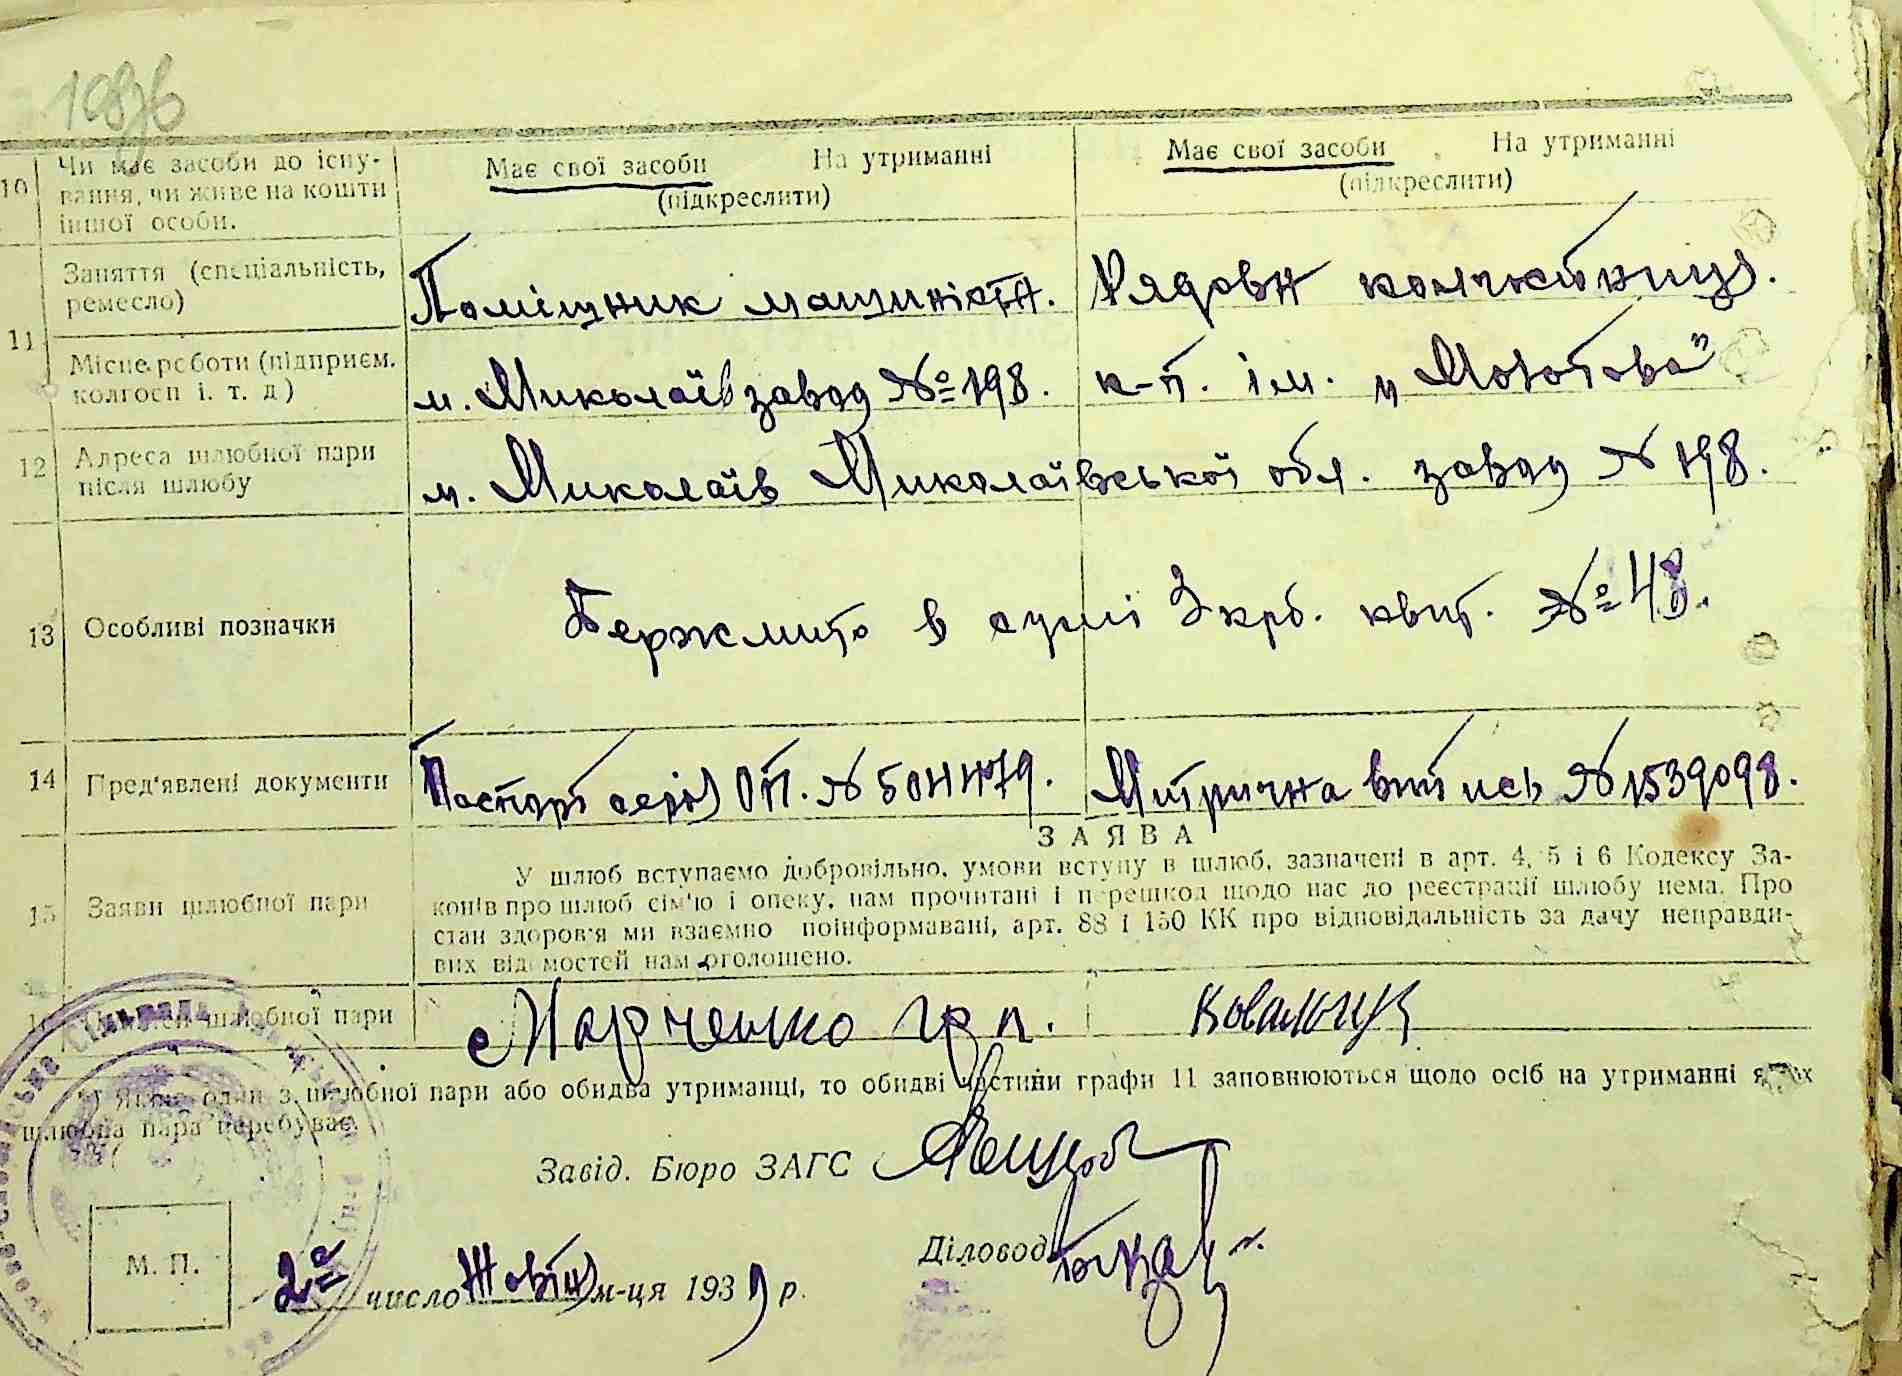 10 Чи має засоби до існу-
вання, чи живе на кошти
іншої особи.
Має свої засоби На утриманні
(підкреслити)
Має свої засоби На утриманні
(підкреслити)
11 Заняття (спеціальність,
ремесло)
Поміщник машиніста.
Рядова колгоспниця.
Місце роботи (підприєм.
колгосп і. т. д)
м. Миколаїв завод № 198.
к-п. ім. „Молотова"
12 Адреса шлюбної пари
після шлюбу
м. Миколаїв Миколаївської обл. завод № 198.
13 Особливі позначки
Держмито в сумі 3 крб. квит. № 48.
14 Пред'явлені документи
Паспорт серія ОП. № 504479.
Митрична випись № 1539098.
15 Заяви шлюбної пари
ЗАЯВА
У шлюб вступаємо добровільно, умови вступу в шлюб, зазначені в арт. 4, 5 і 6 Кодексу За-
конів про шлюб сім'ю і опеку, нам прочитані і перешкод щодо нас до реєстрації шлюбу нема. Про
стан здоров'я ми взаємно поінформавані, арт. 88 і 150 КК про відповідальність за дачу неправди-
вих відомостей нам оголошено.
шлюбної пари
Марченко гр п.
Ковальчук
*) Якщо один з шлюбної пари або обидва утриманці, то обидві частини графи 11 заповнюються щодо осіб на утриманні яких
шлюбна пара перебуває.
Завід. Бюро ЗАГС
Діловод
М. П.
2го число Жовтня м-ця 1939 р.